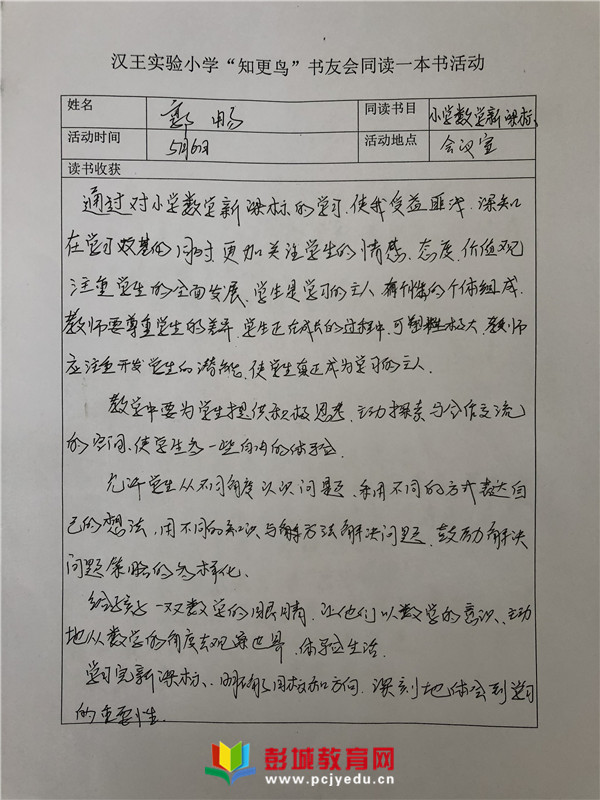 汉王实验小学“知更鸟”书友会同读一本书活动
姓名 郭畅 同读书目 小学数学新课标
活动时间 5月6日 活动地点 会议室
读书收获
通过对小学数学新课标的学习,使我受益匪浅,深知
在学习双基的同时,更加关注学生的情感、态度、价值观
注重学生的全面发展、学生是学习的主人 有个性的个体组成.
教师要尊重学生的差异,学生正在成长的过程中,可塑性极大,教师
应注重开发学生的潜能,使学生真正成为学习的主人.
教学中要为学生提供积极思考、主动探索与合作交流
的空间、使学生多一些自由的体验.
允许学生从不同角度认识问题,采用不同的方式表达自
己的想法,用不同的知识与解方法解决问题,鼓励解决
问题策略的多样化、
给孩子一双数学的眼睛,让他们以数学的意识、主动
地从数学的角度去观察世界,体验生活.
学习完新课标、明确了目标和方向,深刻地体会到学习
的重要性.
彭城教育网
www.pcjyedu.cn